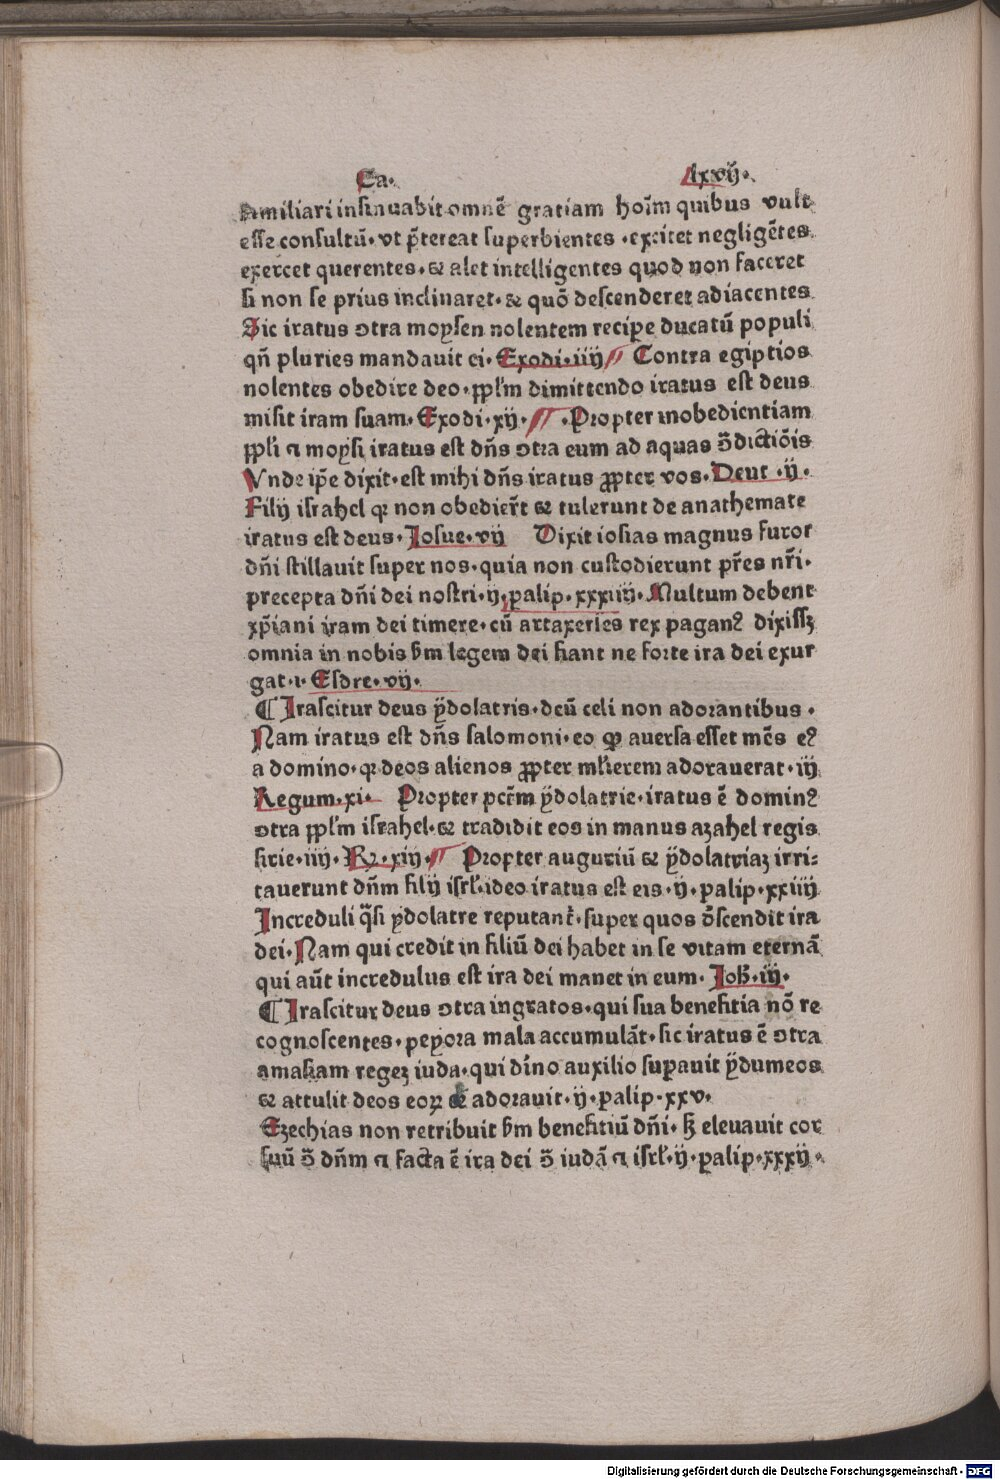 Ca. lxxvij.
familiari insinuabit omnē gratiam hoīm quibus vult
esse consultū. vt p̄tereat superbientes. excitet negligētes
exercet querentes. ⁊ alet intelligentes quod non faceret
si non se prius inclinaret. ⁊ quō descenderet adiacentes
Sic iratus ↄtra moysen nolentem recipe ducatū populi
qn̄ pluries mandauit ei. Exodi. iiij Contra egiptios
nolentes obedire deo. ppl'm dimittendo iratus est deus
misit iram suam. Exodi. xij. Propter inobedientiam
ppl'i ⁊ moysi iratus est dn̄s ↄtra eum ad aquas ↄ̄dictiōis
Vnde ip̄e dixit. est mihi dn̄s iratus ꝓpter vos. Deut ij.
Filij israhel qꝛ non obedier̄t ⁊ tulerunt de anathemate
iratus est deus. Josue. vij Dixit iosias magnus furor
dn̄i stillauit super nos. quia non custodierunt pr̄es nr̄i.
precepta dn̄i dei nostri. ij. palip. xxxiiij. Multum debent
xp̄iani iram dei timere. cū artaxerses rex paganꝰ dixissꝫ
omnia in nobis ẜm legem dei fiant ne forte ira dei exur
gat. i. Esdre. vij.
¶ Irascitur deus ydolatris. deū celi non adorantibus.
Nam iratus est dn̄s salomoni. eo ꝙ auersa esset mēs eꝰ
a domino. qꝛ deos alienos ꝓpter ml'ierem adorauerat. iij
Regum. xi. Propter pctm̄ ydolatrie. iratus ē dominꝰ
ↄtra ppl'm israhel. ⁊ tradidit eos in manus azahel regis
sirie. iiij. Rꝫ. xiij. Propter auguriū ⁊ ydolatriaꝫ irri:
tauerunt dn̄m filij isrl'. ideo iratus est eis. ij. palip. xxiiij
Increduli q̄si ydolatre reputant̄. super quos d̄scendit ira
dei. Nam qui credit in filiū dei habet in se vitam eternā
qui aūt incredulus est ira dei manet in eum. Joh̄. iij.
¶ Irascitur deus ↄtra ingratos. qui sua benefitia nō re
cognoscentes. peyora mala accumulāt. sic iratus ē ↄtra
amasiam regeꝫ iuda. qui diīno auxilio suꝑauit ydumeos
⁊ attulit deos eoꝝ ⁊ adorauit. ij. palip. xxv.
Ezechias non retribuit ẜm benefitiū dn̄i. sꝫ eleuauit cor
suū ↄ̄ dn̄m ⁊ facta ē ira dei ↄ̄ iudā ⁊ isrl'. ij. palip. xxxij.
Digitalisierung gefördert durch die Deutsche Forschungsgemeinschaft - DFG